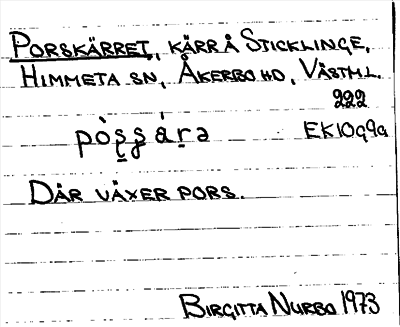 PORSKÄRRET, KÄRR Å STICKLINGE,
HIMMETA SN, ÅKERBO HD, VÄSTML.
222
EK10g9a
DÄR VÄXER PORS.
BIRGITTA NURBO 1973